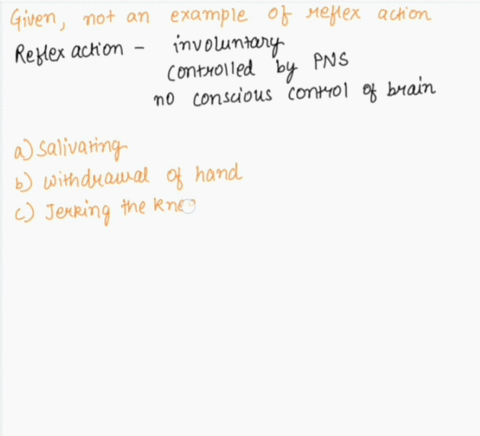 Given, not an example of reflex action
Reflex action - involuntary
controlled by PNS
no conscious control of brain
a) Salivating
b) withdrawal of hand
c) Jerking the knee